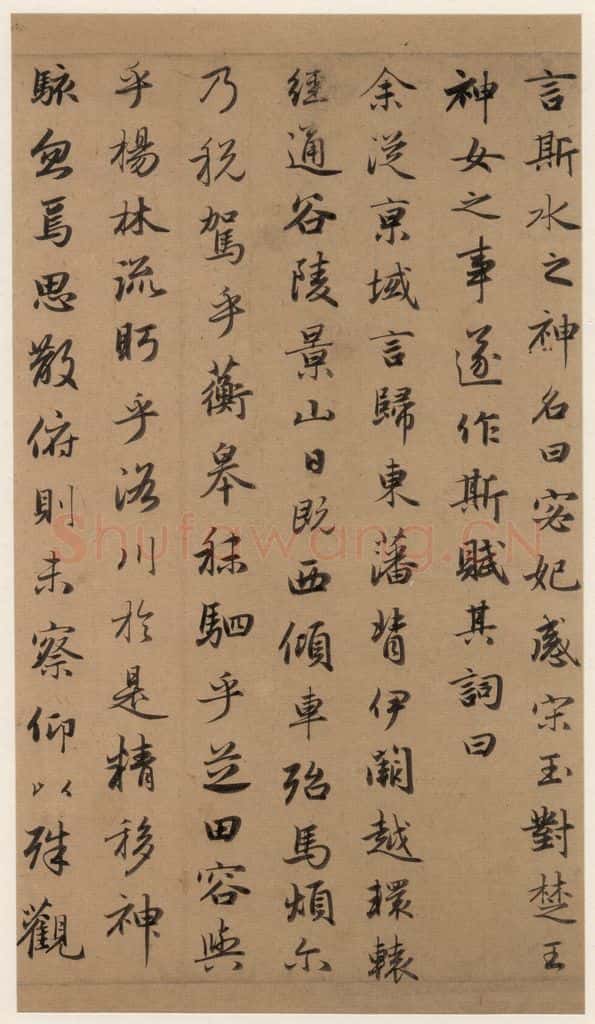 言斯水之神名曰宓妃感宋玉對楚王
神女之事遂作斯賦其詞曰
余從京域言歸東藩背伊闕越轘轅
經通谷陵景山日既西傾車殆馬煩尔
乃税駕乎蘅皋秣駟乎芝田容與
乎楊林流眄乎洛川於是精移神
駭忽焉思散俯則未察仰以殊觀
Shufawang.CN